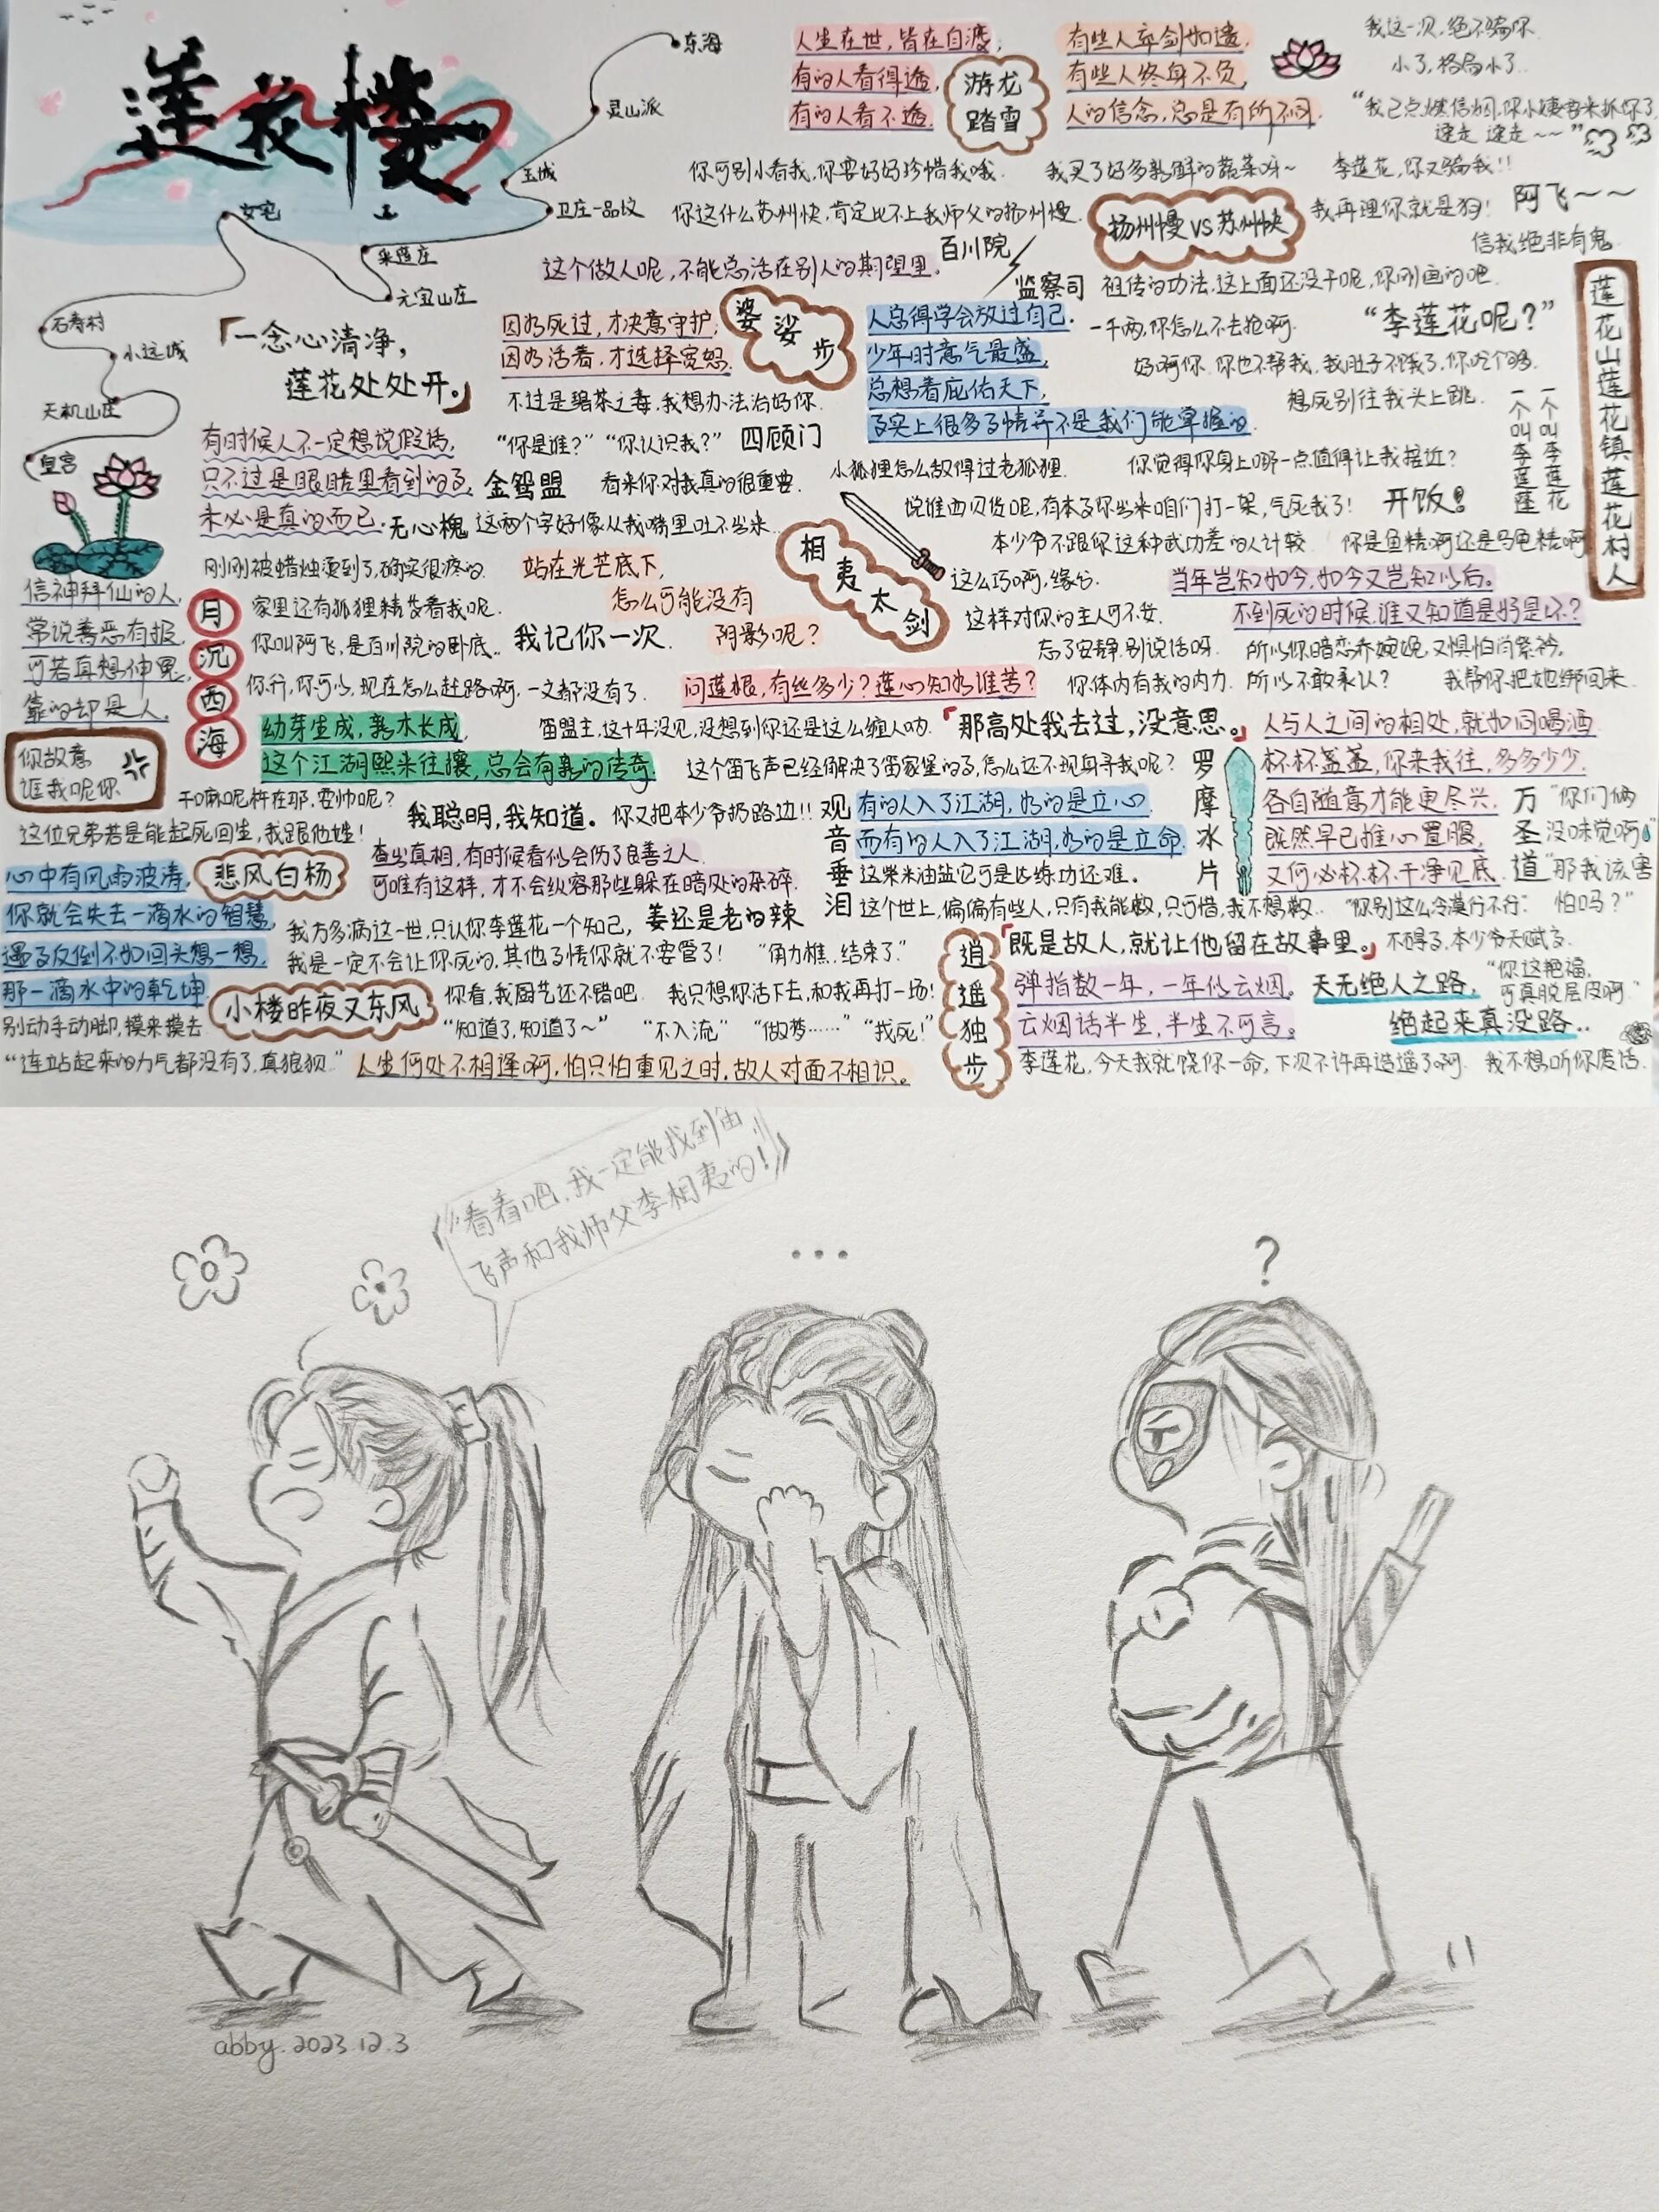 莲花楼
东海
灵山派
玉城
卫庄一品坟
女宅
采莲庄
元宝山庄
石寿村
小远城
天机山庄
皇宫
人生在世，皆在自渡，
有的人看得透，
有的人看不透。
游龙
踏雪
有些人弃剑如遗，
有些人终身不负，
人的信念，总是有所不同。
我这一次，绝不骗你
小了，格局小了..
“我已点燃信烟，你小姨客来抓你了
速走 速走~~”
你可别小看我，你要好好珍惜我哦.
我买了好多新鲜的蔬菜呀~
李莲花，你又骗我!!
你这什么苏州快，肯定比不上我师父的扬州慢.
扬州慢VS苏州快
我再理你就是狗!
阿飞~~
信我绝非有鬼.
百川院
监察司
这个做人呢，不能总活在别人的期望里。
祖传的功法，这上面还没干呢，你刚画的吧.
「一念心清净，
莲花处处开。」
因为死过，才决意守护，
因为活着，才选择宽恕.
婆娑步
人总得学会放过自己.
少年时意气最盛，
总想着庇佑天下，
事实上很多事情并不是我们能掌握的.
一千两，你怎么不去抢啊.
“李莲花呢？”
好啊你，你也不帮我，我肚子不饿了，你吃个够.
想死别往我头上跳.
一个叫李莲蓬
一个叫李莲花
莲花山莲花镇莲花村人
不过是碧茶之毒，我想办法治好你.
有时候人不一定想说假话，
只不过是眼睛里看到的事，
未必是真的而已.
“你是谁？”“你认识我？”
四顾门
金鸳盟
看来你对我真的很重要.
小狐狸怎么敌得过老狐狸.
你觉得你身上哪一点值得让我接近？
无心槐
这两个字好像从我嘴里吐不出来...
说谁西贝货呢，有本事你出来咱们打一架，气死我了!
开饭!
本少爷不跟你这种武功差的人计较.
你是鱼精啊还是乌龟精啊
刚刚被蜡烛烫到了，确实很疼的.
站在光芒底下，
怎么可能没有
阴影呢？
相夷太剑
这么巧啊，缘分.
当年岂知如今，如今又岂知以后。
不到死的时候，谁又知道是好是坏？
信神拜仙的人，
常说善恶有报，
可若真想伸冤，
靠的却是人.
月沉西海
家里还有狐狸精等着我呢.
你叫阿飞，是百川院的卧底..
我记你一次
这样对你的主人可不好.
忘了安静，别说话呀.
所以你暗恋乔婉娩，又惧怕肖紫衿，
你行，你可以，现在怎么赶路啊，一文都没有了.
问莲根，有丝多少？莲心知为谁苦？
你体内有我的内力.
所以不敢承认？
我帮你把她绑回来.
幼芽生成，新木长成，
这个江湖熙来往攘，总会有新的传奇.
笛盟主，这十年没见，没想到你还是这么缠人呐.
「那高处我去过，没意思。」
人与人之间的相处，就如同喝酒
杯杯盏盏，你来我往，多多少少.
各自随意才能更尽兴.
既然早已推心置腹，
又何必杯杯干净见底.
你故意
诓我呢你
这个笛飞声已经解决了笛家堡的事，怎么还不现身寻我呢？
罗摩冰片
干嘛呢杵在那，耍帅呢？
我聪明，我知道。
你又把本少爷扔路边!!
观音垂泪
有的人入了江湖，为的是立心
而有的人入了江湖，为的是立命.
万圣道
“你们俩
没味觉啊”
“那我该害
怕吗？”
这位兄弟若是能起死回生，我跟他姓!
查出真相，有时候看似会伤了良善之人.
可唯有这样，才不会纵容那些躲在暗处的杂碎.
这柴米油盐它可是比练功还难.
心中有风雨波涛，
你就会失去一滴水的智慧，
遇事反倒不如回头想一想，
那一滴水中的乾坤.
悲风白杨
我方多病这一世，只认你李莲花一个知己，
姜还是老的辣
这个世上，偏偏有些人，只有我能救，只可惜，我不想救..
“你别这么冷漠行不行：
我是一定不会让你死的，其他事情你就不要管了!
“角力樵，结束了”
「既是故人，就让他留在故事里。」
不碍事，本少爷天赋高.
逍遥独步
弹指数一年，一年似云烟。
云烟话半生，半生不可言。
天无绝人之路，
绝起来真没路..
“你这艳福，
可真脱层皮啊”
别动手动脚，摸来摸去
小楼昨夜又东风
你看，我厨艺还不错吧.
我只想你活下去，和我再打一场!
“知道了，知道了~”
“不入流”
“做梦……”
“找死!”
“连站起来的力气都没有了，真狼狈.”
人生何处不相逢啊，怕只怕重见之时，故人对面不相识。
李莲花，今天我就饶你一命，下次不许再造谣了啊.
我不想听你废话.
看着吧，我一定能找到笛
飞声和我师父李相夷的!
...
?
abby.2023.12.3